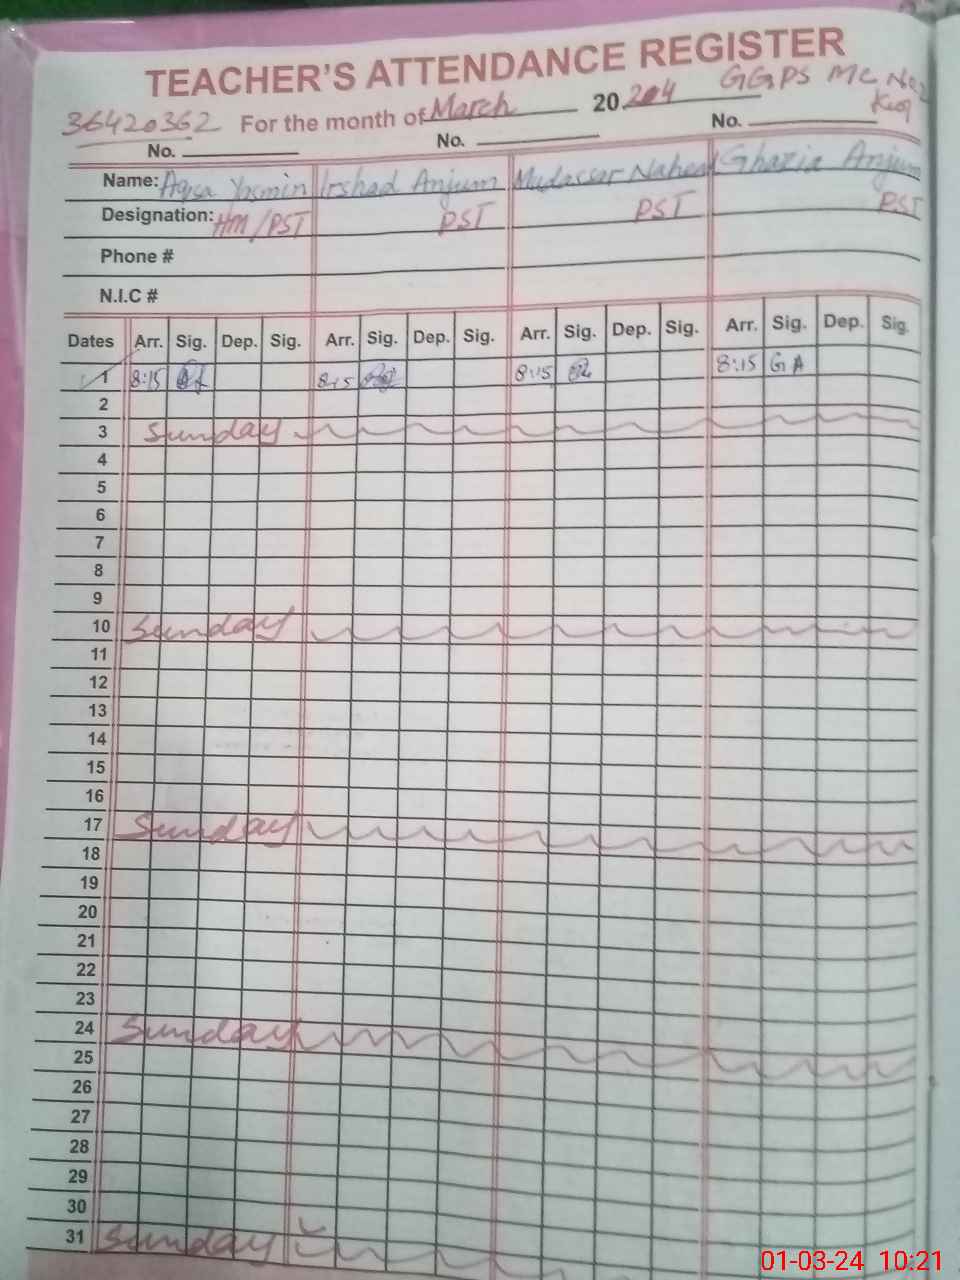 TEACHER'S ATTENDANCE REGISTER
GGPS MC No.2
36420362 For the month of March 20 204
No. No. No.
Name: Aqsa Yasmin Irshad Anjum Mudassar Naheed Ghazia Anjum
Designation: HM/PST PST PST PST
Phone #
N.I.C #
Dates Arr. Sig. Dep. Sig. Arr. Sig. Dep. Sig. Arr. Sig. Dep. Sig. Arr. Sig. Dep. Sig.
1 8:15 8:15 8:15 8:15 GA
2
3 Sunday
4
5
6
7
8
9
10 Sunday
11
12
13
14
15
16
17 Sunday
18
19
20
21
22
23
24 Sunday
25
26
27
28
29
30
31 Sunday
01-03-24 10:21